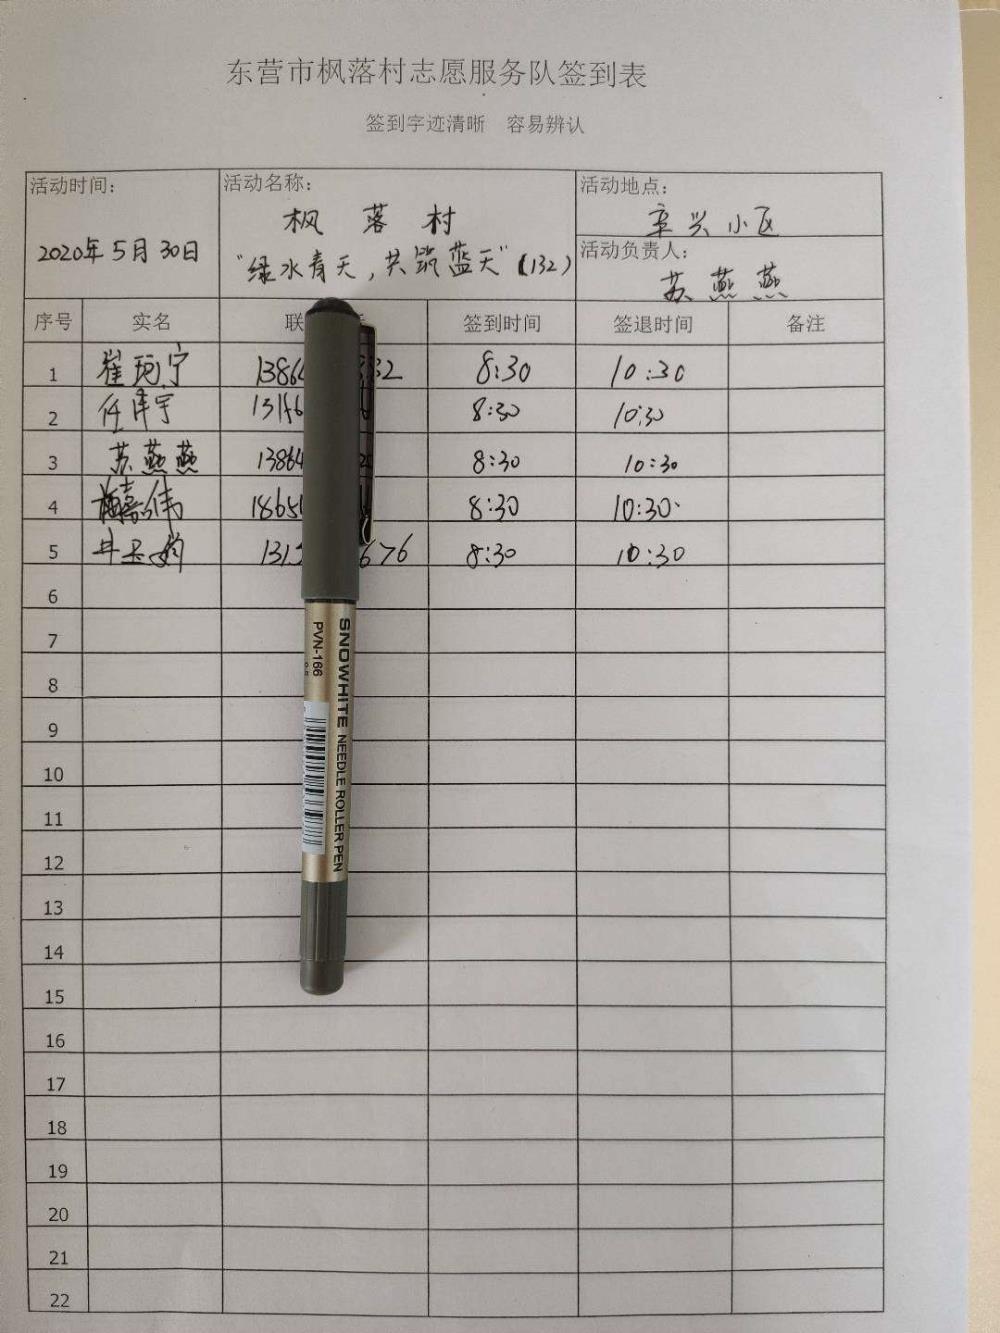 东营市枫落村志愿服务队签到表
签到字迹清晰 容易辨认
活动时间：
2020年5月30日
活动名称：
枫 落 村
"绿水青天，共筑蓝天"（132）
活动地点：
辛兴小区
活动负责人：
苏燕燕
序号 实名 联 签到时间 签退时间 备注
1 崔 宁 1386 32 8:30 10:30
2 任 宇 131 8:30 10:30
3 苏燕燕 13864 8:30 10:30
4 嘉伟 1865 8:30 10:30
5 井玉 131 676 8:30 10:30
6
7
8
9
10
11
12
13
14
15
16
17
18
19
20
21
22
SNOWHITE NEEDLE ROLLER PEN
PVN-166